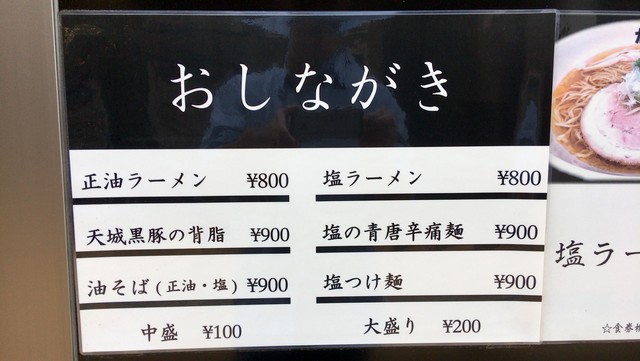 おしながき
正油ラーメン ¥800
塩ラーメン ¥800
天城黒豚の背脂 ¥900
塩の青唐辛痛麺 ¥900
油そば(正油・塩) ¥900
塩つけ麺 ¥900
中盛 ¥100
大盛り ¥200
塩ラー
☆食券